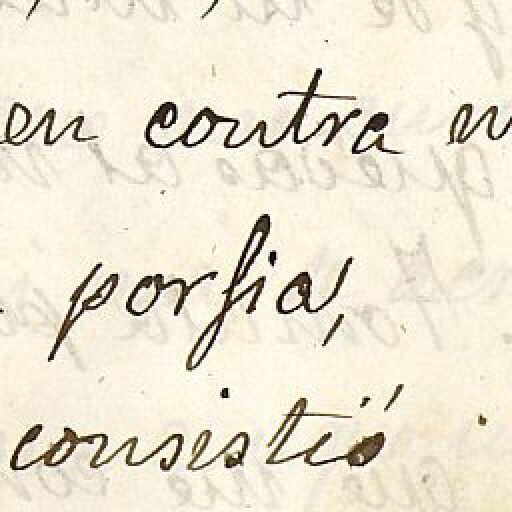 en contra
porfia,
consistió